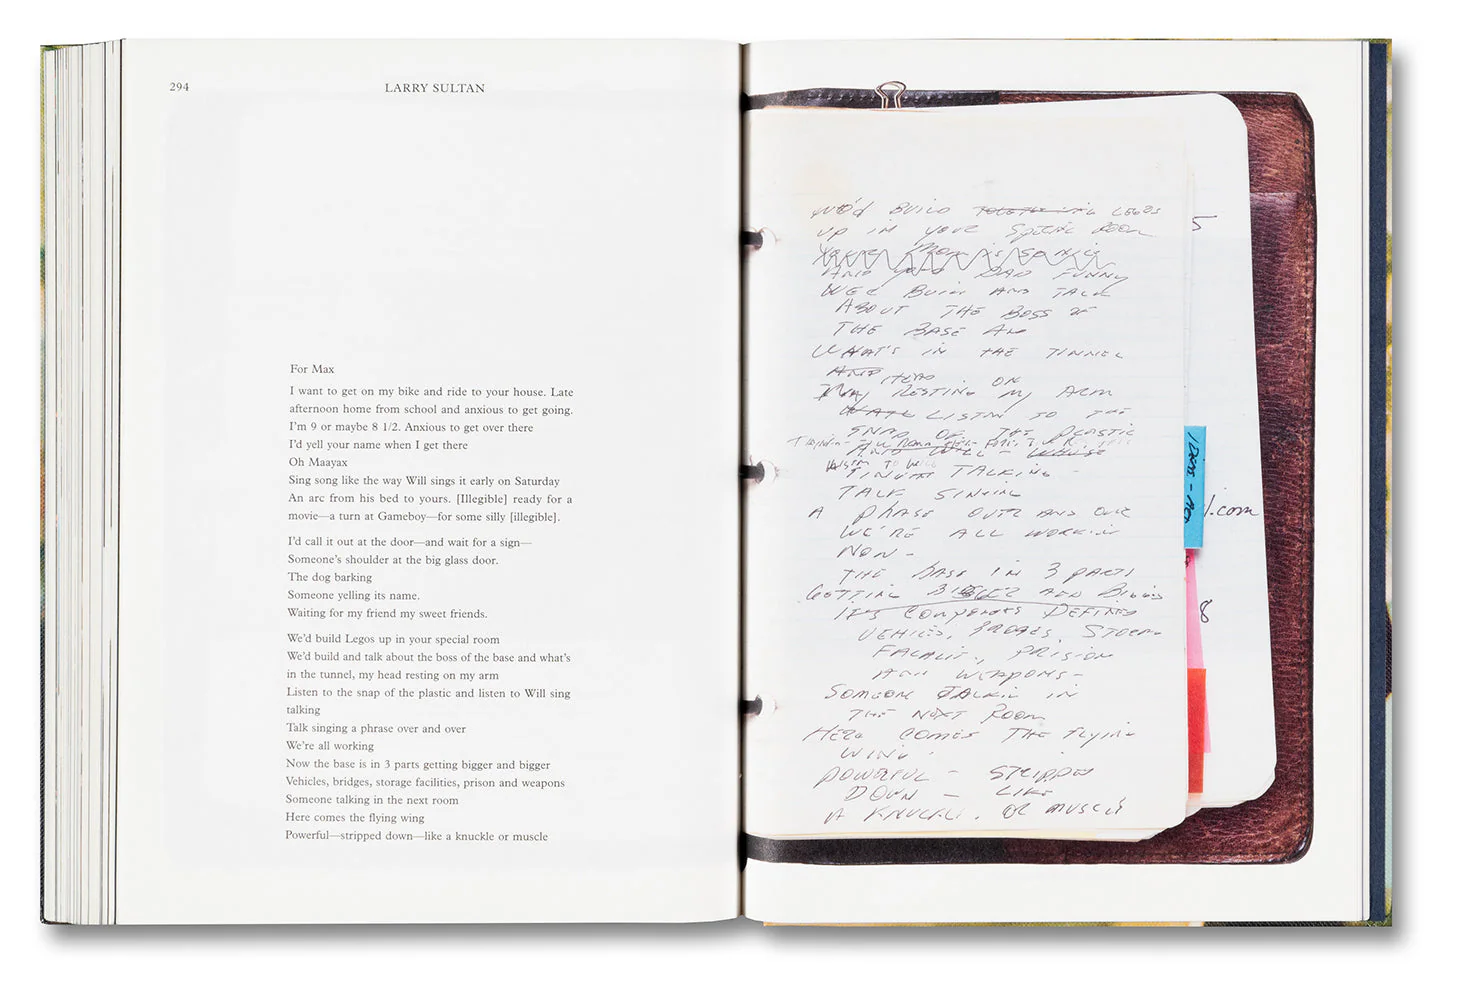 294
LARRY SULTAN
For Max
I want to get on my bike and ride to your house. Late
afternoon home from school and anxious to get going.
I'm 9 or maybe 8 1/2. Anxious to get over there
I'd yell your name when I get there
Oh Maayax
Sing song like the way Will sings it early on Saturday
An arc from his bed to yours. [Illegible] ready for a
movie—a turn at Gameboy—for some silly [illegible].
I'd call it out at the door—and wait for a sign—
Someone's shoulder at the big glass door.
The dog barking
Someone yelling its name.
Waiting for my friend my sweet friends.
We'd build Legos up in your special room
We'd build and talk about the boss of the base and what's
in the tunnel, my head resting on my arm
Listen to the snap of the plastic and listen to Will sing
talking
Talk singing a phrase over and over
We're all working
Now the base is in 3 parts getting bigger and bigger
Vehicles, bridges, storage facilities, prison and weapons
Someone talking in the next room
Here comes the flying wing
Powerful—stripped down—like a knuckle or muscle
WE'D BUILD LEGOS
UP IN YOUR ROOM
AND YOUR DAD FUNNY
BUILD AND TALK
ABOUT THE BOSS OF
THE BASE AND
WHAT'S IN THE TUNNEL
HEAD ON
MY RESTING MY ARM
LISTEN TO THE
SNAP OF THE PLASTIC
AND WILL
TALKING -
TALK SINGING
A PHRASE OVER AND OVER
WE'RE ALL WORKING
NOW -
THE BASE IN 3 PARTS
GETTING BIGGER AND BIGGER
DEFINED
VEHICLES, BRIDGES, STORAGE
PRISON
AND WEAPONS -
SOMEONE TALKING IN
THE NEXT ROOM
HERE COMES THE FLYING
WING
POWERFUL - STRIPPED
DOWN - LIKE
A KNUCKLE. OR MUSCLE
5
l.com
8